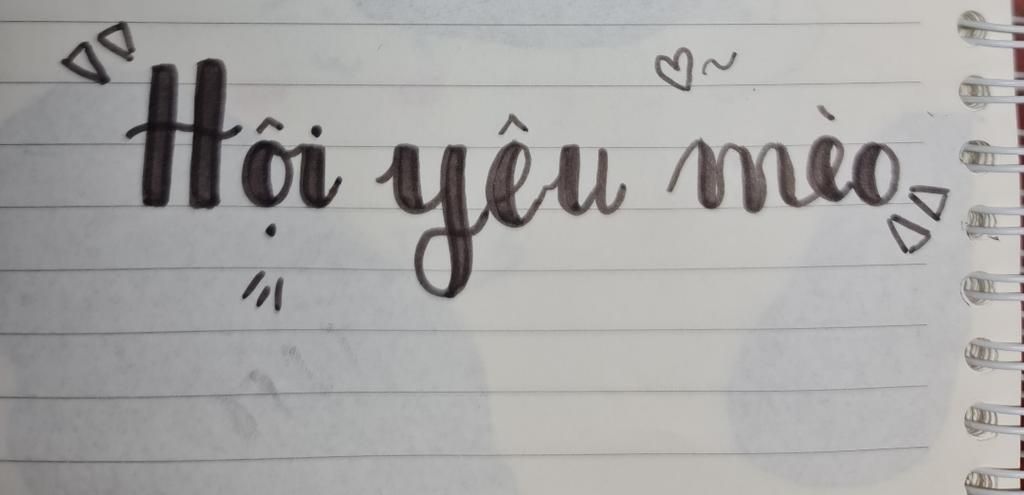 Hội yêu mèo